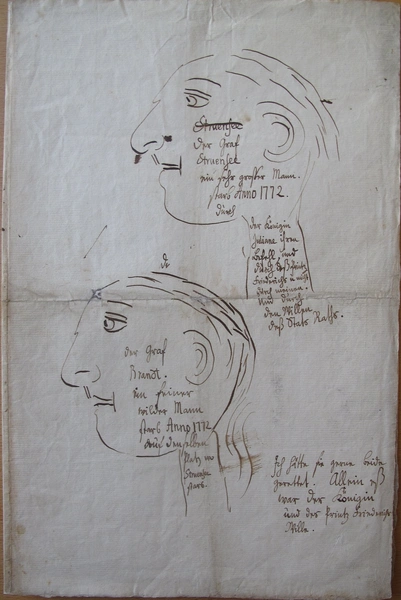 Struensee
der Graf
Struensee
ein sehr großer Mann.
starb Anno 1772.
durch
der Königin
Juliane ihren
Befehl, und
durch deß Printz
Friederichs
durch meinen.
Und durch
den Willen
deß Stats Raths.
de
der Graf
Brandt.
ein feiner
wilder Mann
starb Anno 1772
auf denselben
Platz wo
Struensee
starb.
Ich hätte sie gerne beide
gerettet. Allein eß
war der Königin
und des Printz Friederichs
Wille.